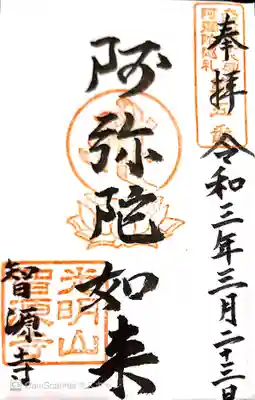 奉拝 令和三年三月二十三日
阿弥陀如来
智源寺
光明山
智源寺
CamScanner